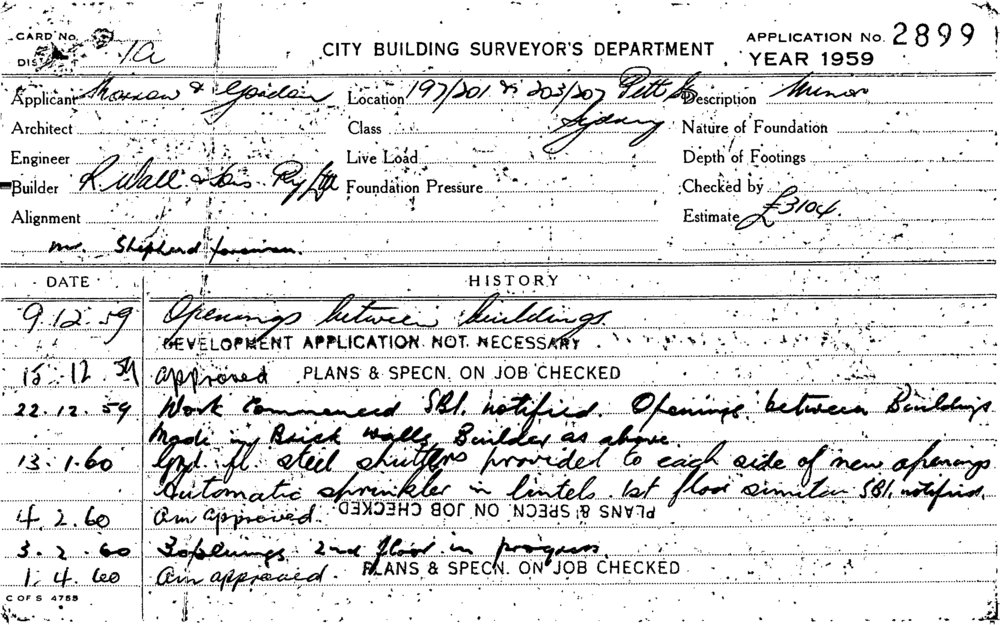 CARD No.
DIST 1a
CITY BUILDING SURVEYOR'S DEPARTMENT
APPLICATION No. 2899
YEAR 1959
Applicant Morrow & Gordon Location 197/201 & 203/207 Pitt St Description Minor
Sydney
Architect Class Nature of Foundation
Engineer Live Load Depth of Footings
Builder R Wall & Sons Pty Ltd Foundation Pressure Checked by
Alignment Estimate £3104.
Mr. Shepherd foreman.
DATE HISTORY
9.12.59 Openings between buildings.
DEVELOPMENT APPLICATION NOT NECESSARY
15.12.59 approved PLANS & SPECN. ON JOB CHECKED
22.12.59 Work Commenced SBI. notified. Openings between Buildings
Made in Brick Walls, Builder as above.
13.1.60 Grd. fl. steel shutters provided to each side of new openings
Automatic sprinkler in lintels. 1st floor similar SBI. notified.
4.2.60 Am approved. PLANS & SPECN. ON JOB CHECKED
3.2.60 openings 2nd floor in progress.
1.4.60 Am approved. PLANS & SPECN. ON JOB CHECKED
C OF S 4755